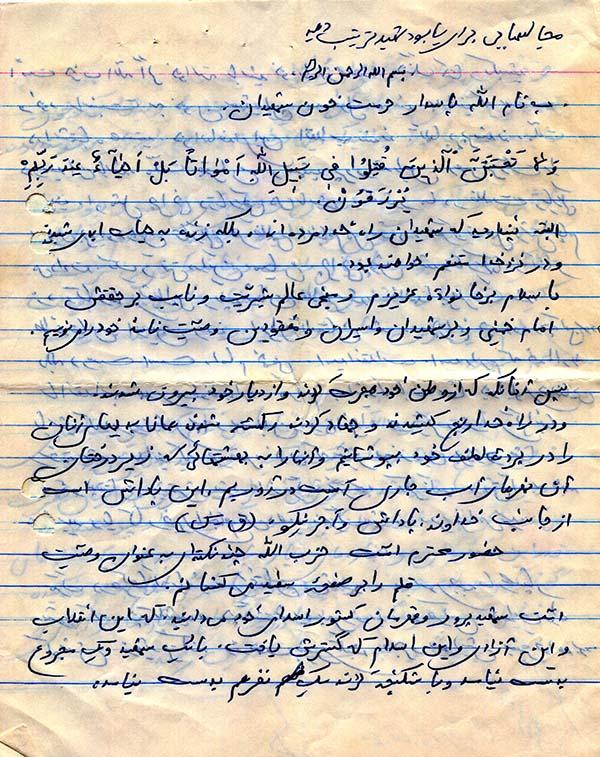 برای یادبود شهید ترتیب دهید
بسم الله الرحمن الرحیم
بنام الله پاسدار حرمت خون شهیدان.
وَلا تَحْسَبَنَّ الَّذینَ قُتِلُوا فی سَبیلِ اللهِ اَمْواتاً بَلْ اَحْیآءٌ عِنْدَ رَبِّهِمْ
یُرْزَقُونَ
البته نپندارید که شهیدان راه خدا مرده‌اند، بلکه زنده به حیات ابدی شدند
و در نزد خدا متنعم خواهند بود.
با سلام بر خانواده عزیزم و منجی عالم بشریت و نایب برحقش
امام خمینی و بر شهیدان و اسیران و مفقودین وصیت نامه خود را می‌نویسم.
پس آنانکه که از وطن خود هجرت کردند و از دیار خود بیرون شدند.
و در راه خدا رنج کشیدند و جهاد کردند و کشته شدند همانا بدیهای آنان
را در پرده لطف خود بپوشانیم و آنها را به بهشتهائی که زیر درختان
آن نهرهای آب جاری است در آوریم. این پاداش است
از جانب خداوند، پاداش و اجر نیکو.
حضور محترم امت حزب الله چند نکته‌ای به عنوان وصیت
قلم را بر صفحه سفید می‌کشانم.
امت شهید پرور و قهرمان کشور اسلامی خود می‌دانید که این انقلاب
و این آزادی و این اسلام که گسترش یافت. با یک شهید و یک مجروح
بدست نیامد و با شکنجه کردن یک نفر هم بدست نیامده.